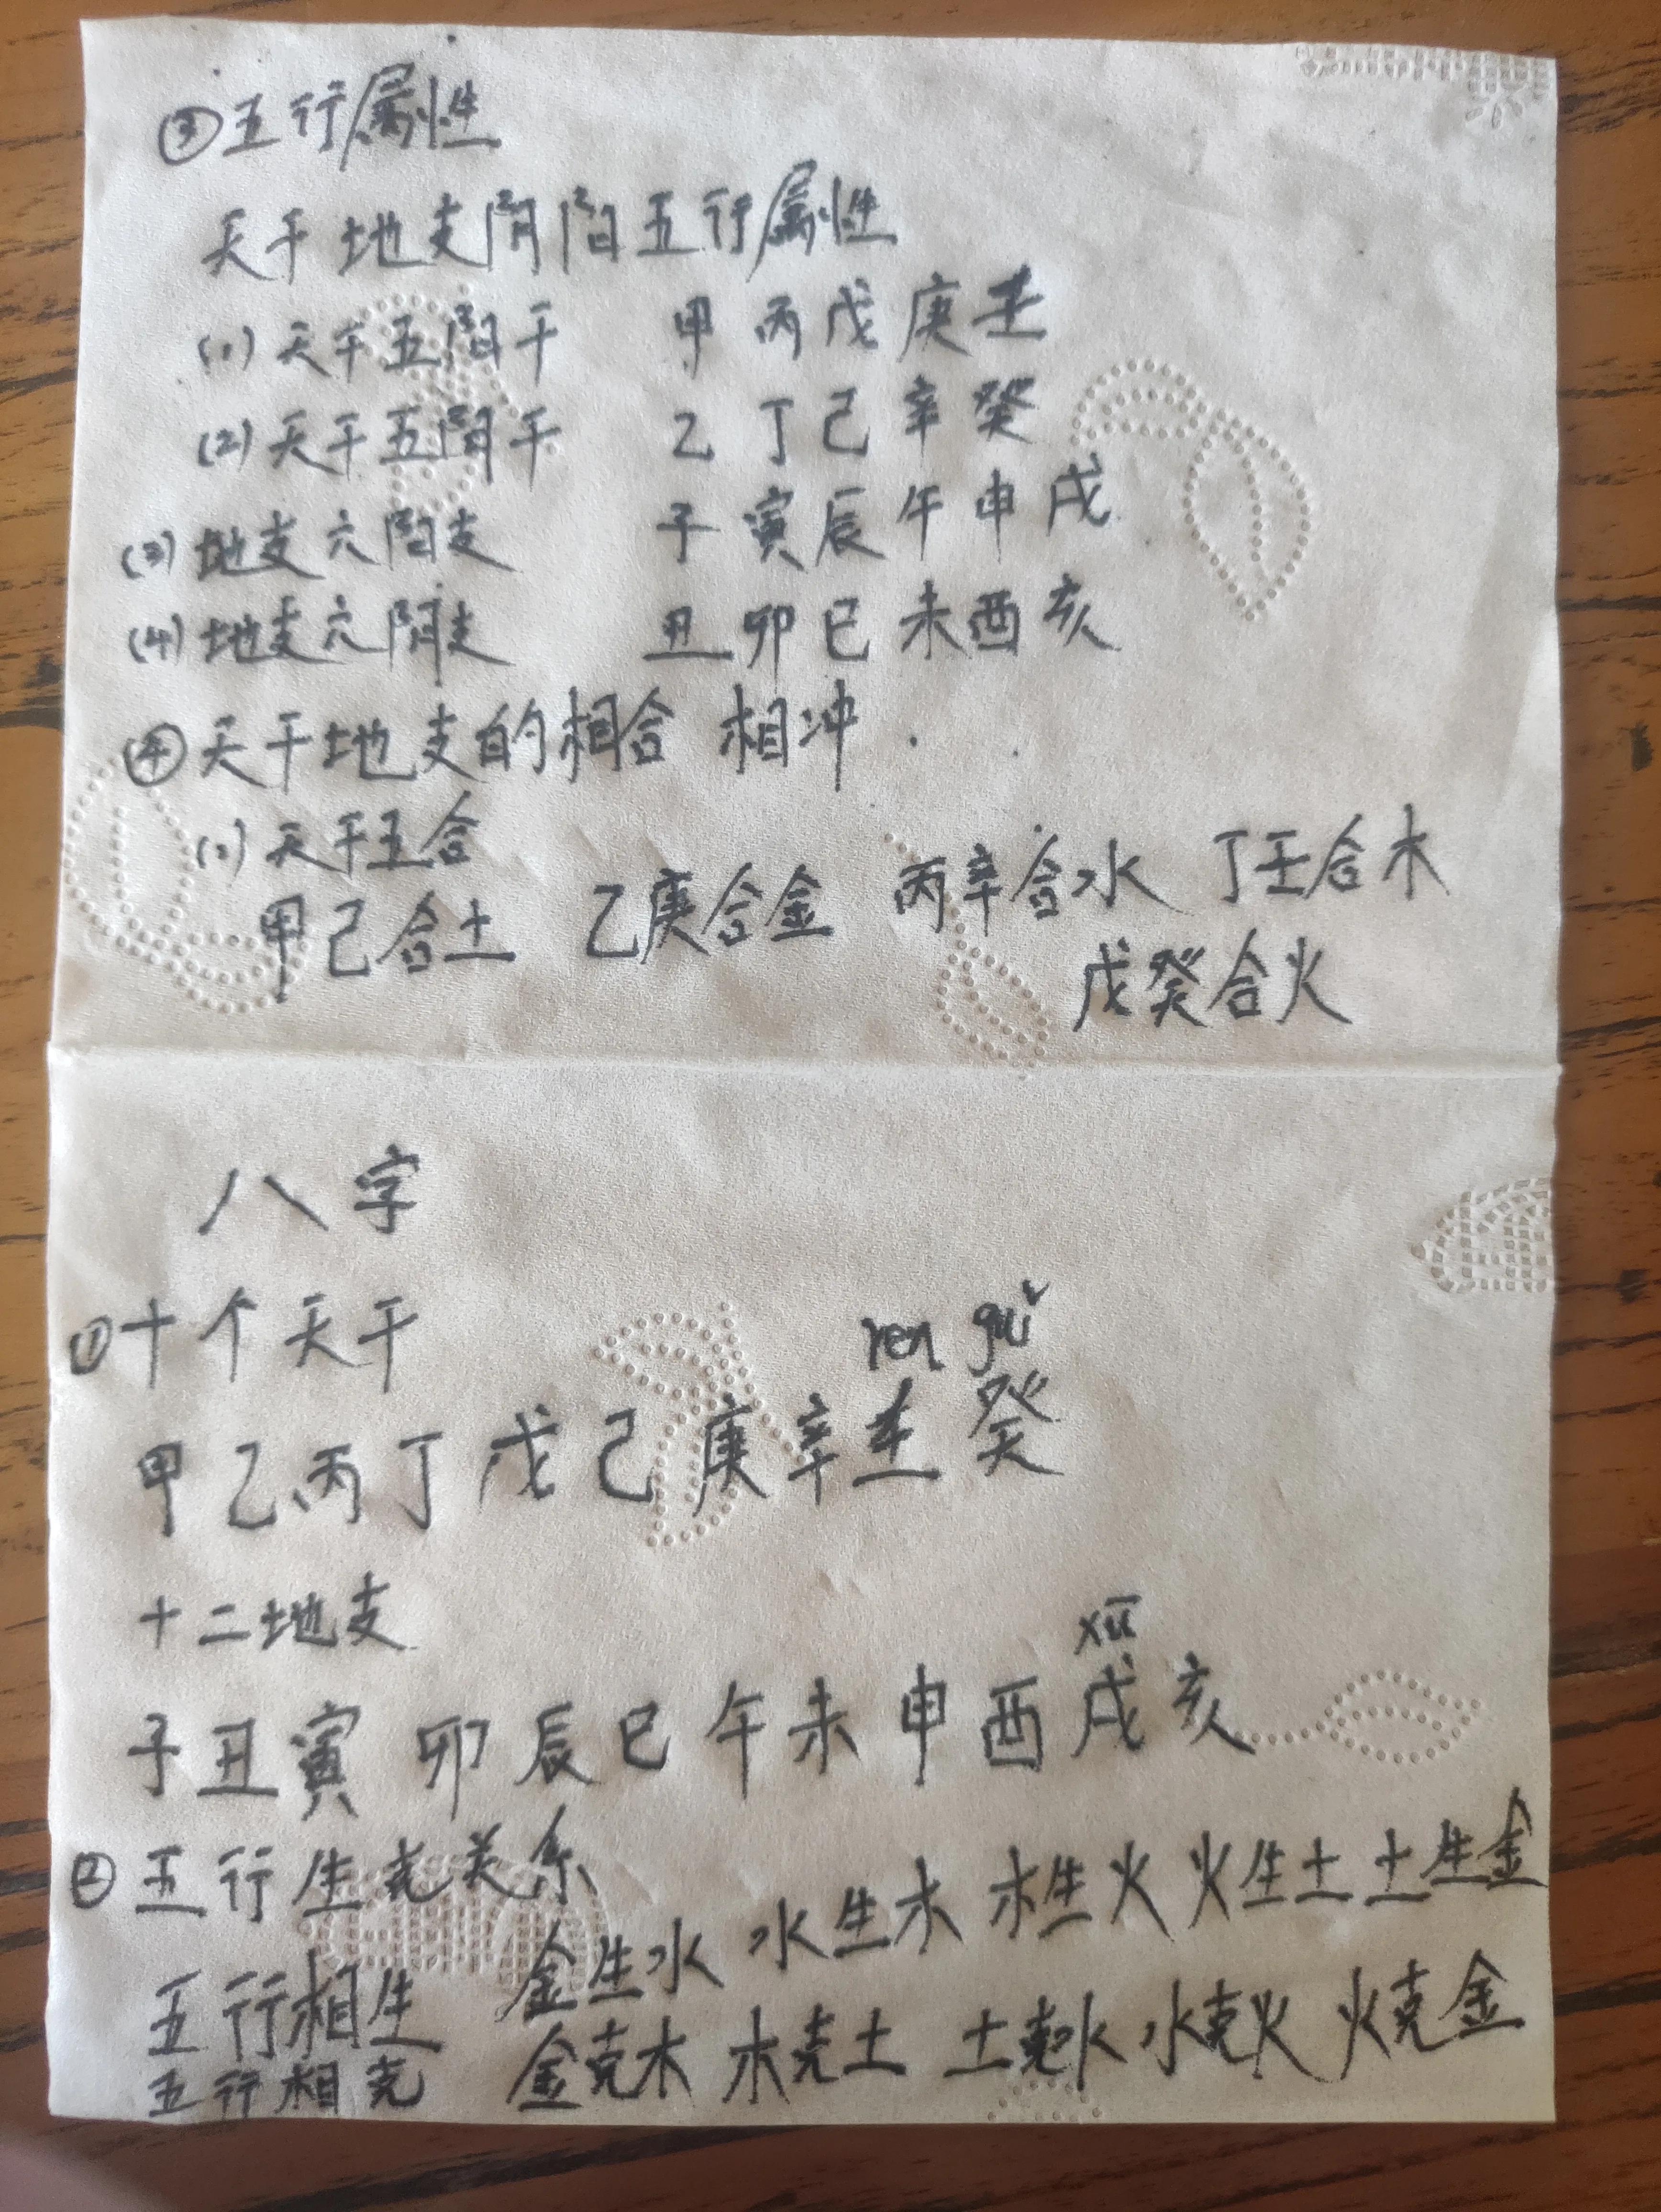 ③五行属性
天干地支阴阳五行属性
(1)天干五阳干 甲丙戊庚壬
(2)天干五阴干 乙丁己辛癸
(3)地支六阳支 子寅辰午申戌
(4)地支六阴支 丑卯巳未酉亥
④天干地支的相合 相冲
(1)天干五合
甲己合土 乙庚合金 丙辛合水 丁壬合木
戊癸合火
八字
①十个天干
ren guǐ
甲乙丙丁戊己庚辛壬癸
十二地支
xū
子丑寅卯辰巳午未申酉戌亥
②五行生克关系
五行相生 金生水 水生木 木生火 火生土 土生金
五行相克 金克木 木克土 土克水 水克火 火克金